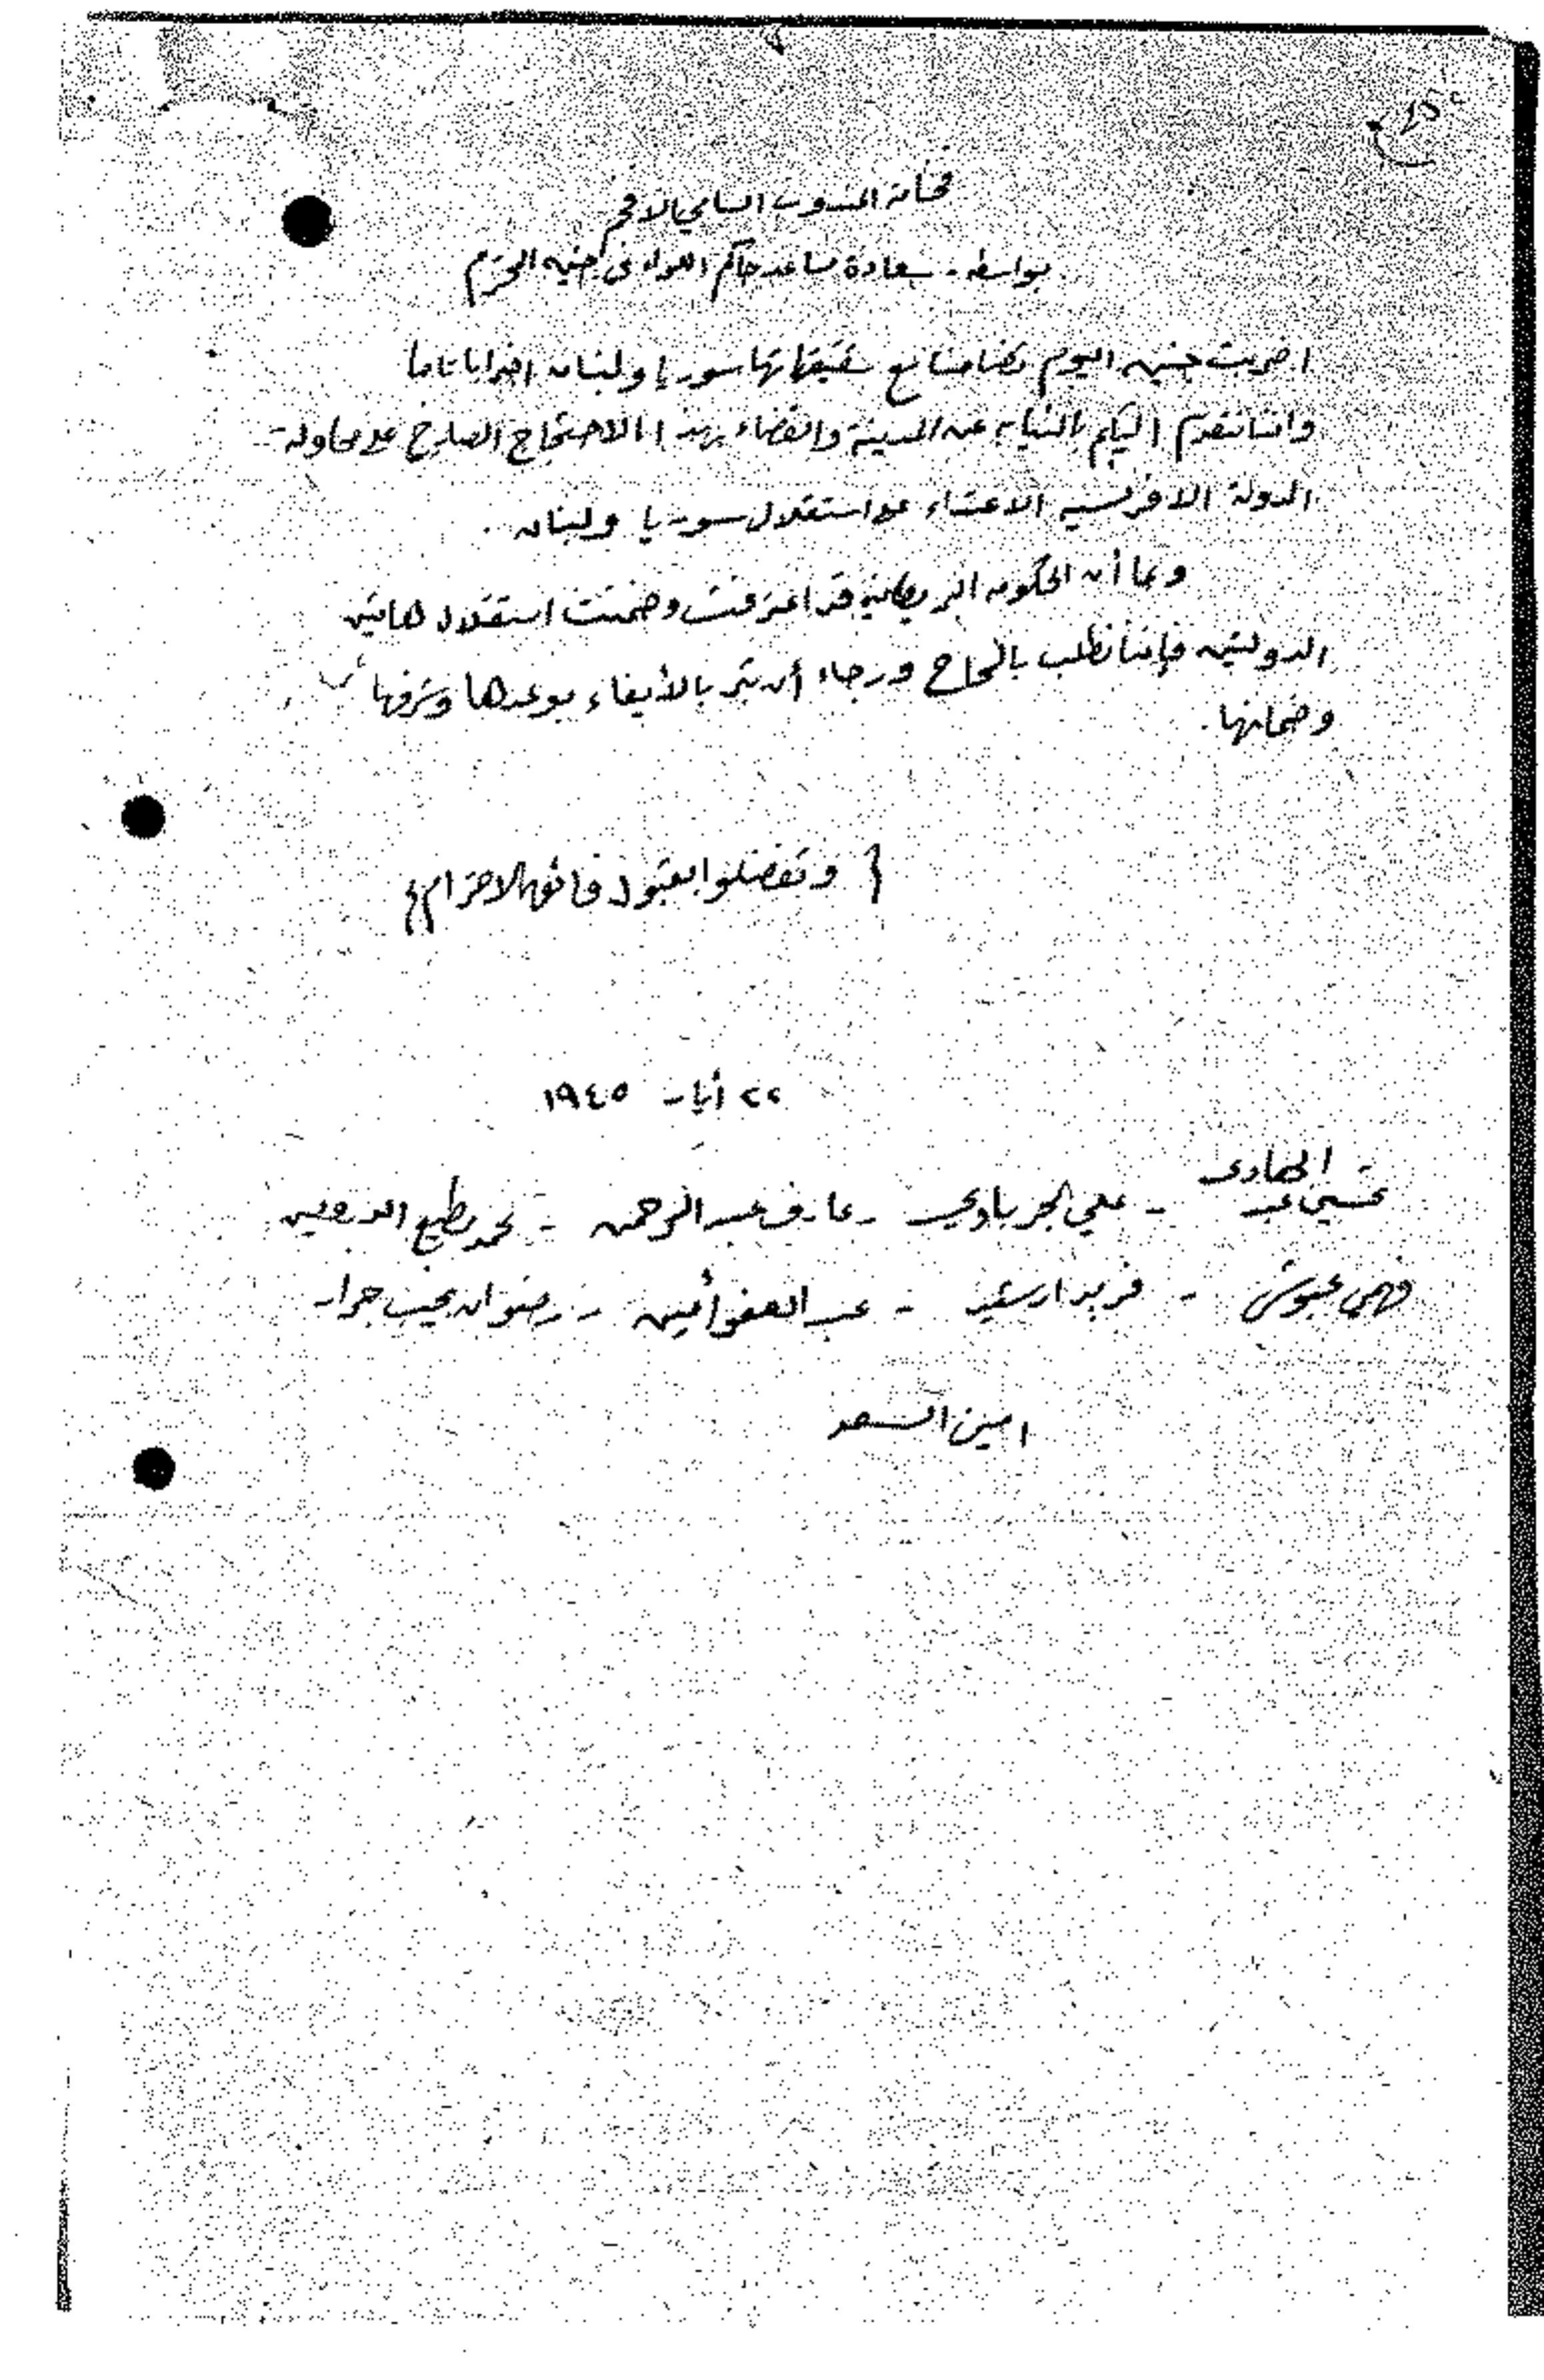 فخامة المندوب السامي الافخم
بواسطة - سعادة مساعد حاكم اللواء في جنين المحترم
اضربت جنين اليوم تضامنا مع شقيقاتها سوريا ولبنان اضرابا تاما
واننا نتقدم اليكم بالنيابة عن المدينة والقضاء بهذا الاحتجاج الصارخ على محاولة
الدولة الافرنسية الاعتداء على استقلال سوريا ولبنان .
وبما أن الحكومة البريطانية قد اعترفت وضمنت استقلال هاتين
الدولتين فإننا نطلب بالحاح ورجاء أن تبر بالأيفاء بوعدها وشرفها
وضمانها .
{ وتفضلوا بقبول فائق الاحترام }
٢٢ أيار ١٩٤٥
عبد الهادي - علي الجرباوي - عارف عبد الرحمن - محمد مطيع الدرويش
فهمي عبوشي - فريد ارشيد - عبد العفو أمين - رضوان نجيب جرار
امين السعد